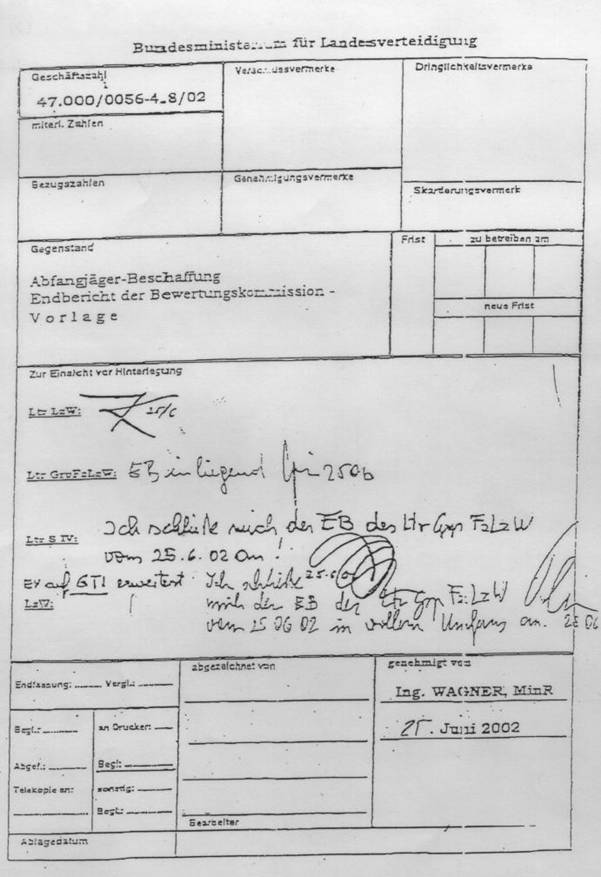 Bundesministerium für Landesverteidigung
Geschäftszahl
47.000/0056-4.8/02
miterl. Zahlen
Bezugszahlen
Genehmigungsvermerke
Dringlichkeitsvermerke
Skartierungsvermerk
Gegenstand
Abfangjäger-Beschaffung
Endbericht der Bewertungskommission -
Vorlage
Frist
zu betreiben am
neue Frist
Zur Einsicht vor Hinterlegung
Ltr LzW: 25/6
Ltr GrpFzLzW: EB inliegend 2506
Ltr S IV: Ich schließe mich der EB des Ltr Grp FzLzW
vom 25.6.02 an!
EV auf GTI erweitert Ich schließe 25.6.
LzW: mich der EB des Ltr Grp Fz:LzW
vom 25 06 02 in vollem Umfang an. 25 06
Endfassung: Vergl.:
Begl.: an Drucker:
Abgef.: Begl:
Telekopie an: sonstig:
Begl.:
Ablagedatum
abgezeichnet von
Bearbeiter
genehmigt von
Ing. WAGNER, MinR
25. Juni 2002